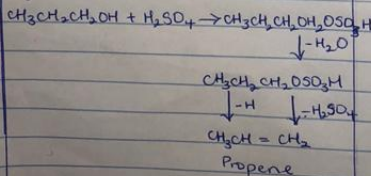 CH3CH2CH2OH + H2SO4 → CH3CH2CH2OH2OSO3H
↓ -H2O
CH3CH2CH2OSO3H
↓ -H ↓ -H2SO4
CH3CH = CH2
Propene